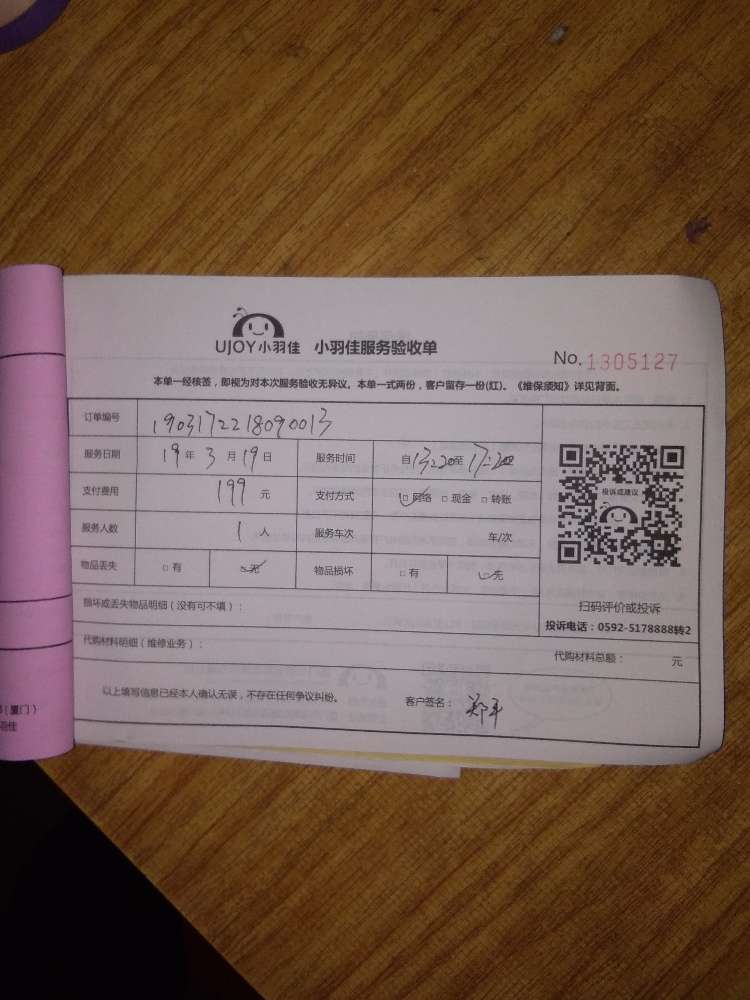 UJOY小羽佳 小羽佳服务验收单
No. 1305127
本单一经核签，即视为对本次服务验收无异议。本单一式两份，客户留存一份(红)。《维保须知》详见背面。
订单编号 1903172218090013
服务日期 19年3月19日 服务时间 自13:20至17:20
支付费用 199元 支付方式 □网络 □现金 □转账
服务人数 1人 服务车次 车/次
物品丢失 □有 □无 物品损坏 □有 □无
投诉或建议
扫码评价或投诉
投诉电话：0592-5178888转2
损坏或丢失物品明细（没有可不填）：
代购材料明细（维修业务）： 代购材料总额： 元
以上填写信息已经本人确认无误，不存在任何争议纠纷。 客户签名： 郑平
(厦门)
羽佳